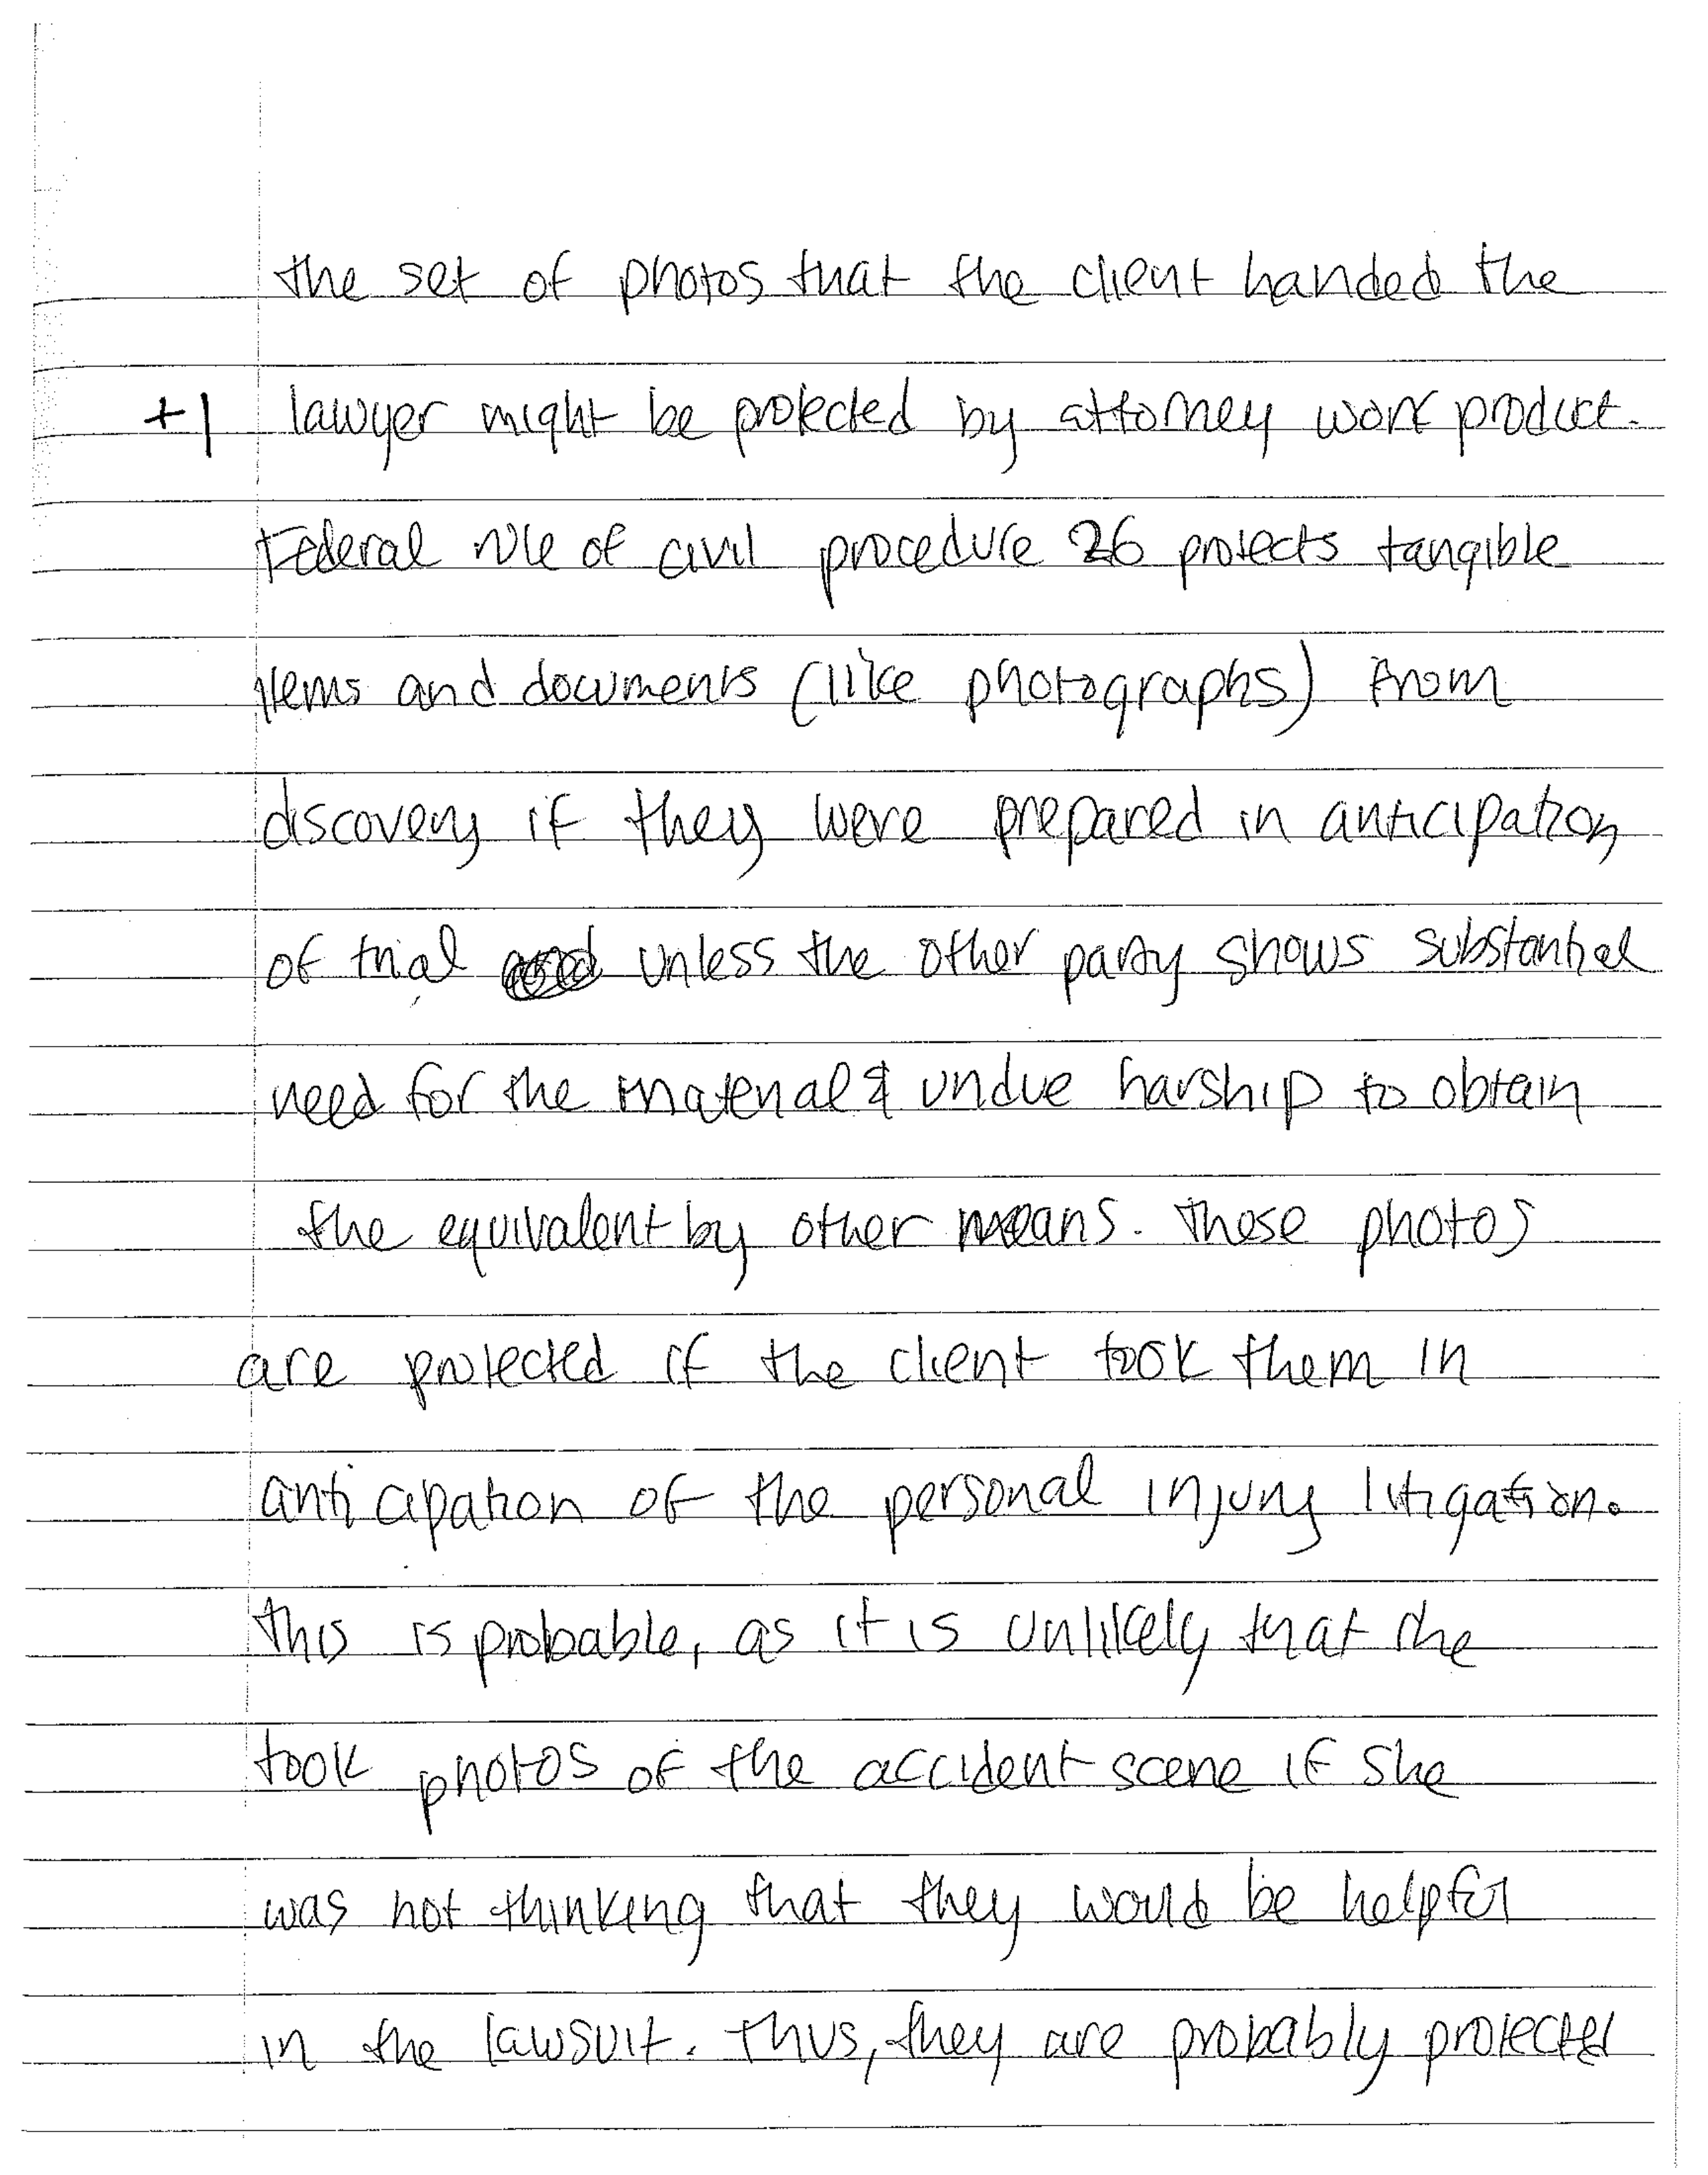 the set of photos that the client handed the
+1 lawyer might be protected by attorney work product.
Federal rule of civil procedure 26 protects tangible
items and documents (like photographs) from
discovery if they were prepared in anticipation
of trial unless the other party shows substantial
need for the material & undue harship to obtain
the equivalent by other means. These photos
are protected if the client took them in
anticipation of the personal injury litigation.
this is probable, as it is unlikely that the
took photos of the accident scene if she
was not thinking that they would be helpful
in the lawsuit. Thus, they are probably protected